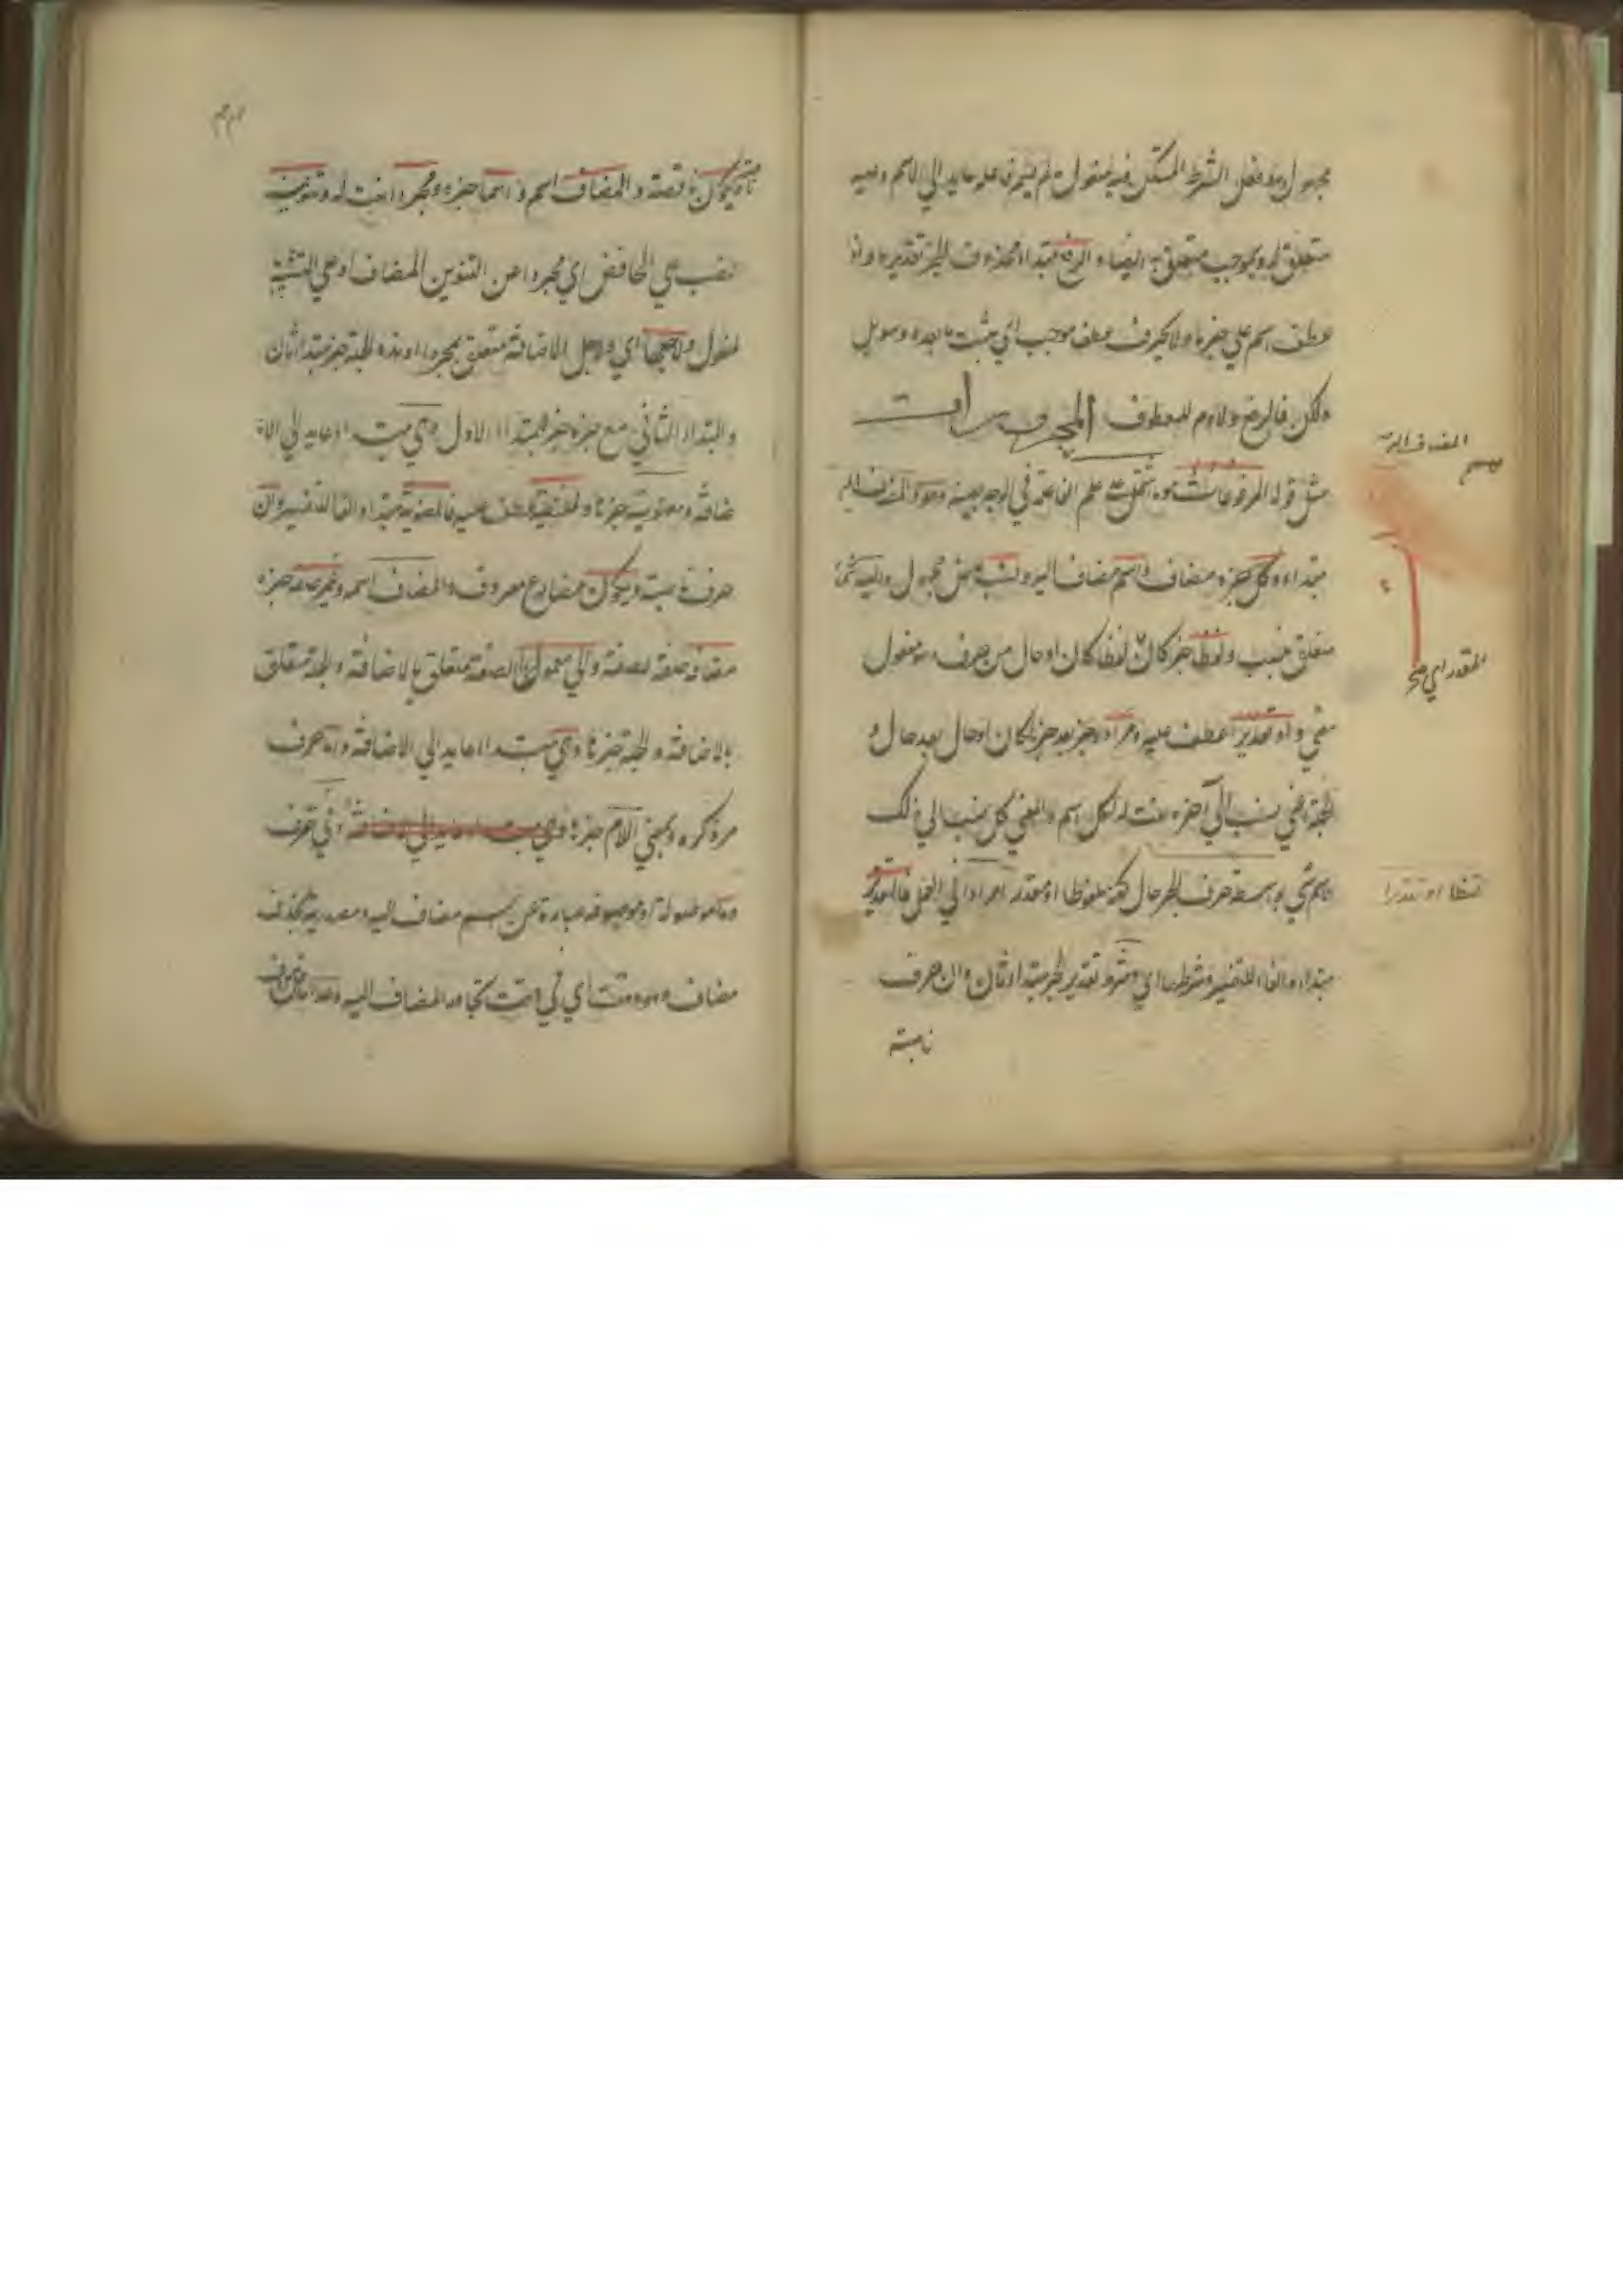 مجهول وهو فعل الشرط المستكن فيه مفعول ما لم يسم فاعله عايد الي الاسم وفيه
متعلق له وبموجب متعلق به ايضا و الرفع مبتداء محذوف الخبر تقديره واذا
عطف اسم علي خبرها ولا كحرف عطف موجب اي مثبت ما بعده وهو بل
ولكن فالرفع ولازم للمعطوف المجرورات
مثل قوله المرفوعات هو ما اشتمل علي علم الفاعلية في الوجه بعينه وهو والمضاف اليه
مبتداء و كل خبره مضاف و اسم مضاف اليه و نسب ماض مجهول واليه شيء
متعلق بنسب و لفظا خبر كان لفظا كان او حال من حرف مفعول
معني و او تقديرا عطف عليه و مرادا خبر بعد خبر لكان او حال بعد حال و
الجملة اعني نسب الي آخره نعت لكل اسم والمعني كل ينسب الي ذلك
الاسم شي بواسطة حرف الجر حال كونه ملفوظا او مقدرا مرادا في العمل فالتقدير
مبتداء والفاء للتفسير وشرطه اي وشرط تقدير الجر مبتداء ثان و ان حرف
ناصبة
المضاف اليه
المقدر اي
لفظا او تقديرا
ناصبة يكون ناقصة و المضاف اسمه و اسما خبره و مجردا نعت له و تنوينه
نصب علي الخافض اي مجردا عن التنوين المضاف او علي التشبيه
لمفعول و لاجلها اي و لاجل الاضافة متعلق بمجردا و هذه الجملة خبر مبتداء ثان
والمبتداء الثاني مع خبره خبر المبتداء الاول و هي مبتداء عايد الي الا
ضافة و معنوية خبرها و لفظية عطف عليه فالمعنوية مبتداء والفاء للتفسير و ان
حرف ناصبة و يكون مضارع معروف و المضاف اسمه و غير صفة خبره
مضافة صفة لصفة و الي معمولها الصفة متعلق بالاضافة والجملة متعلق
بالاضافة و الجملة خبرها و هي مبتداء عايد الي الاضافة و اما حرف
مر ذكره و بمعني اللام خبرها و في حرف
و ما موصولة او موصوفة عبارة عن اسم مضاف اليه ومصدرية بحذف
مضاف و هو وقت اي في وقت المضاف اليه و عدا